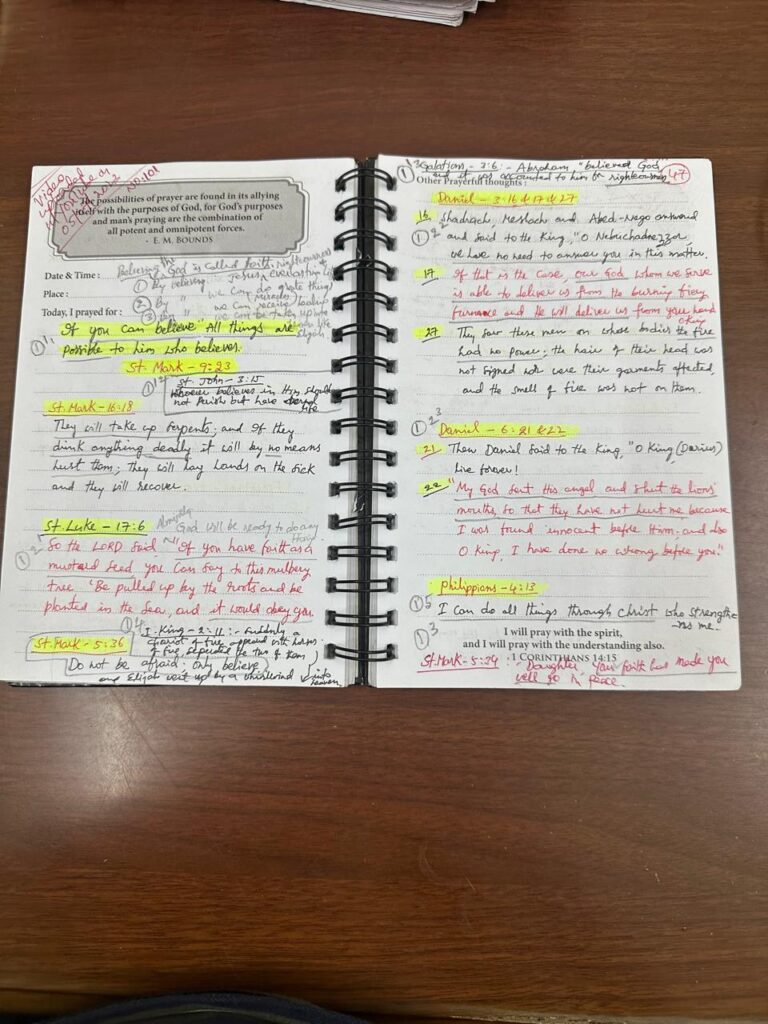 Video
uploaded
in YouTube on
No: 101
The possibilities of prayer are found in its allying
itself with the purposes of God, for God's purposes
and man's praying are the combination of
all potent and omnipotent forces.
- E. M. BOUNDS
Believing the God is called faith, righteousness
Date & Time :
① By believing Jesus, everlasting life
Place :
② By " we can do great things
miracles
Today, I prayed for :
③ By " we can receive
we can be taken up into
like Elijah
If you can believe "All things are
possible to him who believes.
St. Mark - 9:23
St. John - 3:15
whoever believes in Him should
not Perish but have eternal
life
St. Mark - 16:18
They will take up serpents; and if they
drink anything deadly it will by no means
hurt them; They will lay hands on the sick
and they will recover.
St. Luke - 17:6
Almighty God will be ready to do any
thing
So the LORD Said, "If you have faith as a
mustard seed you can say to this mulbery
tree 'Be pulled up by the roots and be
planted in the sea, and it would obey you.
I. King - 2:11 :- Suddenly a
chariot of fire appeared with horses
of fire, separated the two of them
St. Mark - 5:36
Do not be afraid; Only believe
and Elijah went up by a whirlwind into
heaven
Galations - 3:6 :- Abraham "believed God"
and it was accounted to him for righteousness
47
Other Prayerful thoughts :
Daniel - 3:16 & 17 & 27
16 Shadrach, Meshach and Abed-Nego answered
and said to the King, "O Nebuchadnezzar,
we have no need to answer you in this matter.
17 If that is the case, our God whom we serve
is able to deliver us from the burning fiery
furnace and He will deliver us from your hand
O King
27 They saw these men on whose bodies the fire
had no power; the hair of their head was
not signed nor were their garments affected,
and the smell of fire was not on them.
Daniel - 6:21 & 22
21 Then Daniel said to the King, "O King (Darius)
live forever!
22 "My God sent His angel and shut the lions'
mouths, so that they have not hurt me, because
I was found innocent before Him; and also
O King, I have done no wrong before you"
Philippians - 4:13
I can do all things through Christ who strengthe
-ns me"
I will pray with the spirit,
and I will pray with the understanding also.
1 CORINTHIANS 14:15
St. Mark - 5:34 : Daughter, your faith has made you
well go in peace.